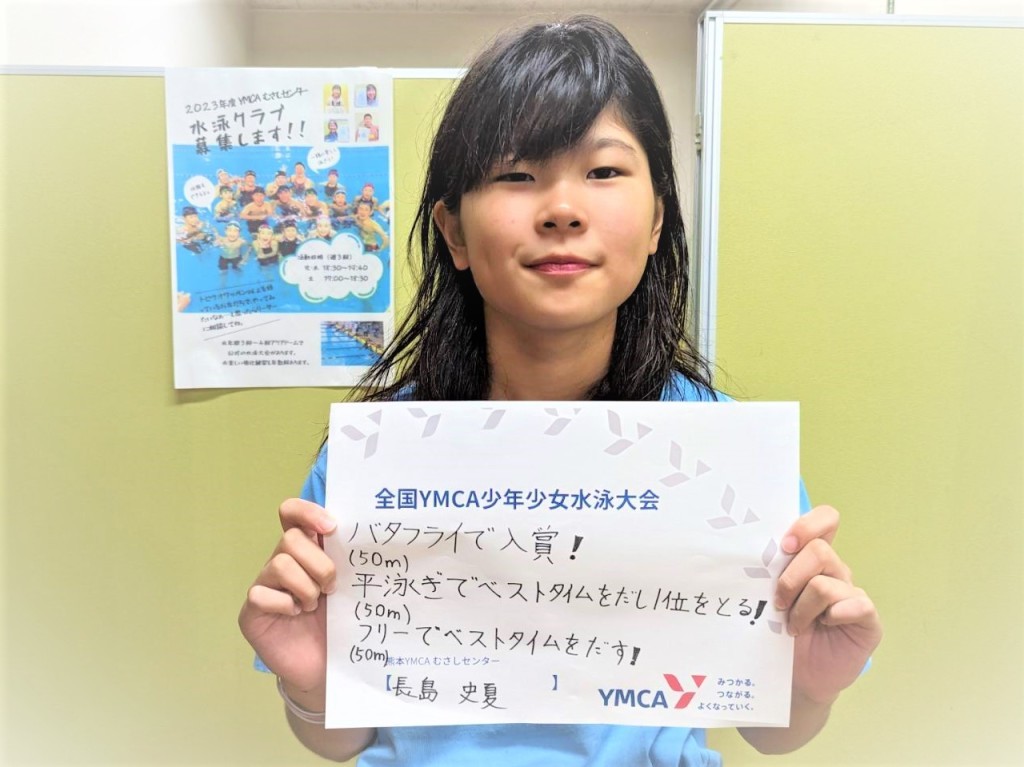 2023年度 YMCA むさしセンター
水泳クラブ
募集します!!
活動時間（週3回）
全国YMCA少年少女水泳大会
バタフライで入賞!
(50m)
平泳ぎでベストタイムをだし1位をとる!
(50m)
フリーでベストタイムをだす!
(50m)
熊本YMCA むさしセンター
【長島 史夏】
YMCA
みつかる。
つながる。
よくなっていく。